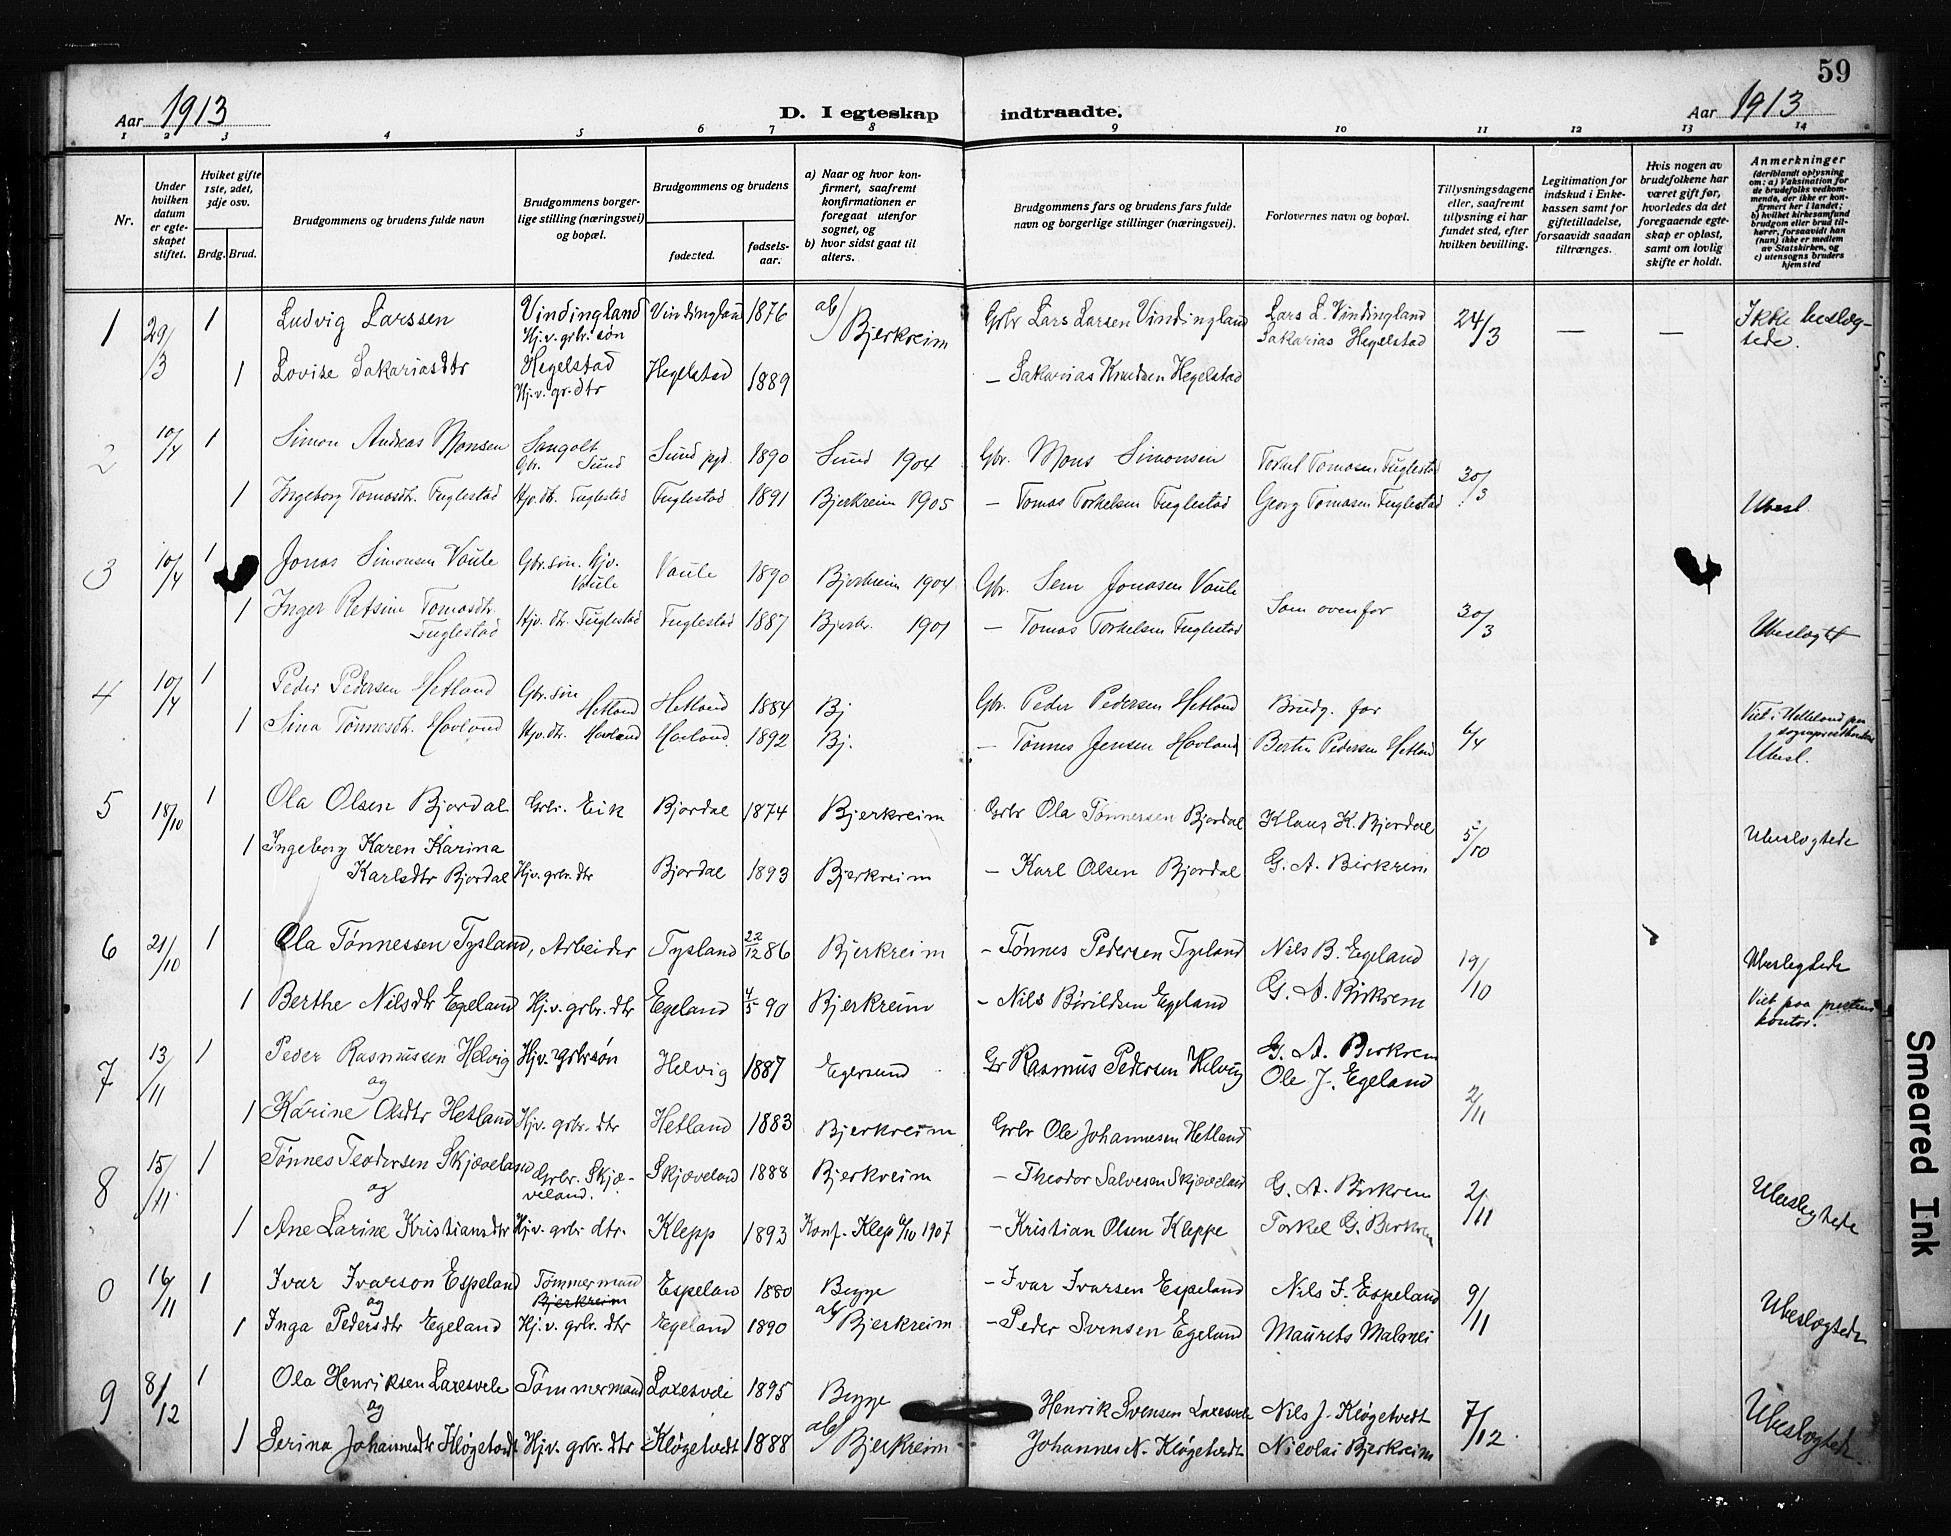 59
Aar 1913 D. I egteskap indtraadte. Aar 1913
1 2 3 4 5 6 7 8 9 10 11 12 13 14
Nr.
Under hvilken datum er egteskapet stiftet.
Hviket gifte 1ste, 2det, 3dje osv.
Brdg. Brud.
Brudgommens og brudens fulde navn
Brudgommens borgerlige stilling (næringsvei) og bopæl.
Brudgommens og brudens
fødested. fødselsaar.
a) Naar og hvor konfirmert, saafremt konfirmationen er foregaat utenfor sognet, og
b) hvor sidst gaat til alters.
Brudgommens fars og brudens fars fulde navn og borgerlige stillinger (næringsvei).
Forlovernes navn og bopæl.
Tillysningsdagene eller, saafremt tillysning ei har fundet sted, efter hvilken bevilling.
Legitimation for indskud i Enkekassen samt for giftetilladelse, forsaavidt saadan tiltrænges.
Hvis nogen av brudefolkene har været gift før, hvorledes da det foregaaende egteskap er opløst, samt om lovlig skifte er holdt.
Anmerkninger
(deriblandt oplysning om: a) Vaksination for de brudefolks vedkommende, der ikke er konfirmert her i landet; b) hvilket kirkesamfund brudgom eller brud tilhører, forsaavidt han (hun) ikke er medlem av Statskirken, og c) utensogns bruders hjemsted
1 29/3 1 Ludvig Larssen Vindingland Hj.v. grbr. søn Vindingland 1876 ab/ Bjerkreim Grbr Lars Larsen Vindingland Lars L. Vindingland Sakarias Hegelstad 24/3 — — Ikke beslægtede.
1 Lovise Sakariasdtr Hegelstad Hj.v. gr. dtr Hegelstad 1889 — Sakarias Knudsen Hegelstad
2 10/4 1 Simon Andreas Monsen Sangolt Gbr. Sund Sund pgd. 1890 Sund 1904 Gbr. Mons Simonsen Torkel Tomasen Fuglestad 30/3
1 Ingeborg Tomasdtr. Fuglestad Hjv. dt. Fuglestad Fuglestad 1891 Bjerkreim 1905 — Tomas Torkelsen Fuglestad Georg Tomasen Fuglestad Ubesl.
3 10/4 1 Jonas Simonsen Vaule Gbr. søn. Hjv. Vaule Vaule 1890 Bjerkreim 1904 Gbr. Sem Jonasen Vaule Som ovenfor 30/3
1 Inger Tomasdtr. Fuglestad Hjv. dtr. Fuglestad Fuglestad 1887 Bjerkr. 1901 — Tomas Torkelsen Fuglestad Ubeslægt
4 10/4 1 Peder Pedersen Hetland Gbr. søn Hetland Hetland 1884 Bj Gbr. Peder Pedersen Hetland Brudg. far 6/4
1 Sina Tønnesdtr. Hovland Hjv. dtr. Hovland Hovland. 1892 Bj. — Tønnes Jensen Hovland Bertin Pedersen Hetland Viet i Helleland Ubesl.
5 18/10 1 Ola Olsen Bjordal Grbr. Eik Bjordal 1874 Bjerkreim Grbr Ola Tønnersen Bjordal Klaus K. Bjordal 5/10 Ubeslegtede
1 Ingeborg Karen Karina Karlsdtr Bjordal Hjv. grbr. dtr Bjordal 1893 Bjerkreim — Karl Olsen Bjordal G. A. Birkrem
6 21/10 1 Ola Tønnessen Tysland, Arbeider Tysland 22/12 86 Bjerkreim — Tønnes Pedersen Tysland Nils B. Egeland 19/10 Ubeslegtede
1 Berthe Nilsdtr Egeland Hj.v. grbr. dtr Egeland 4/5 90 Bjerkreim — Nils Børildsen Egeland G. A. Birkrem Viet paa prestens kontor.
7 13/11 1 Peder Rasmussen Helvig Hjv. grbrsøn Helvig 1887 Egersund Gr Rasmus Pedersen Helvig G. A. Birkrem Ole J. Egeland 2/11
og
1 Karine Olsdtr Hetland Hjv. grbr. dtr Hetland 1883 Bjerkreim Grbr Ole Johannesen Hetland
8 15/11 1 Tønnes Teodersen Skjæveland Grbr. Skjæveland. Skjæveland 1888 Bjerkreim — Theodor Salvesen Skjæveland G. A. Birkrem 2/11 Ubeslegtede
og
1 Ane Larine Kristiansdtr Hj.v. grbr dtr. Klepp 1893 Konf. Klep 6/10 1907 — Kristian Olsen Kleppe Torkel G. Birkrem
0 16/11 1 Ivar Ivarson Espeland Tømmermand Bjerkreim Espeland 1880 Begge — Ivar Ivarsen Espeland Nils J. Espeland 9/11 Ubeslægtede
og
1 Inga Pedersdtr Egeland Hj.v. grbr. dtr Egeland 1890 ab/ Bjerkreim — Peder Svensen Egeland Maurits Malmei
9 8/12 1 Ola Henriksen Laxesvele Tømmermand Laxesvele 1895 Begge Henrik Svensen Laxesvele Nils J. Kløgetvedt 7/12 Ubeslægtede.
og
1 Serina Johannesdtr Kløgetvedt Hj.v. grbr. dtr Kløgetvedt 1888 ab/ Bjerkreim Johannes N. Kløgetvedt Nicolai Bjerkreim
Smeared Ink